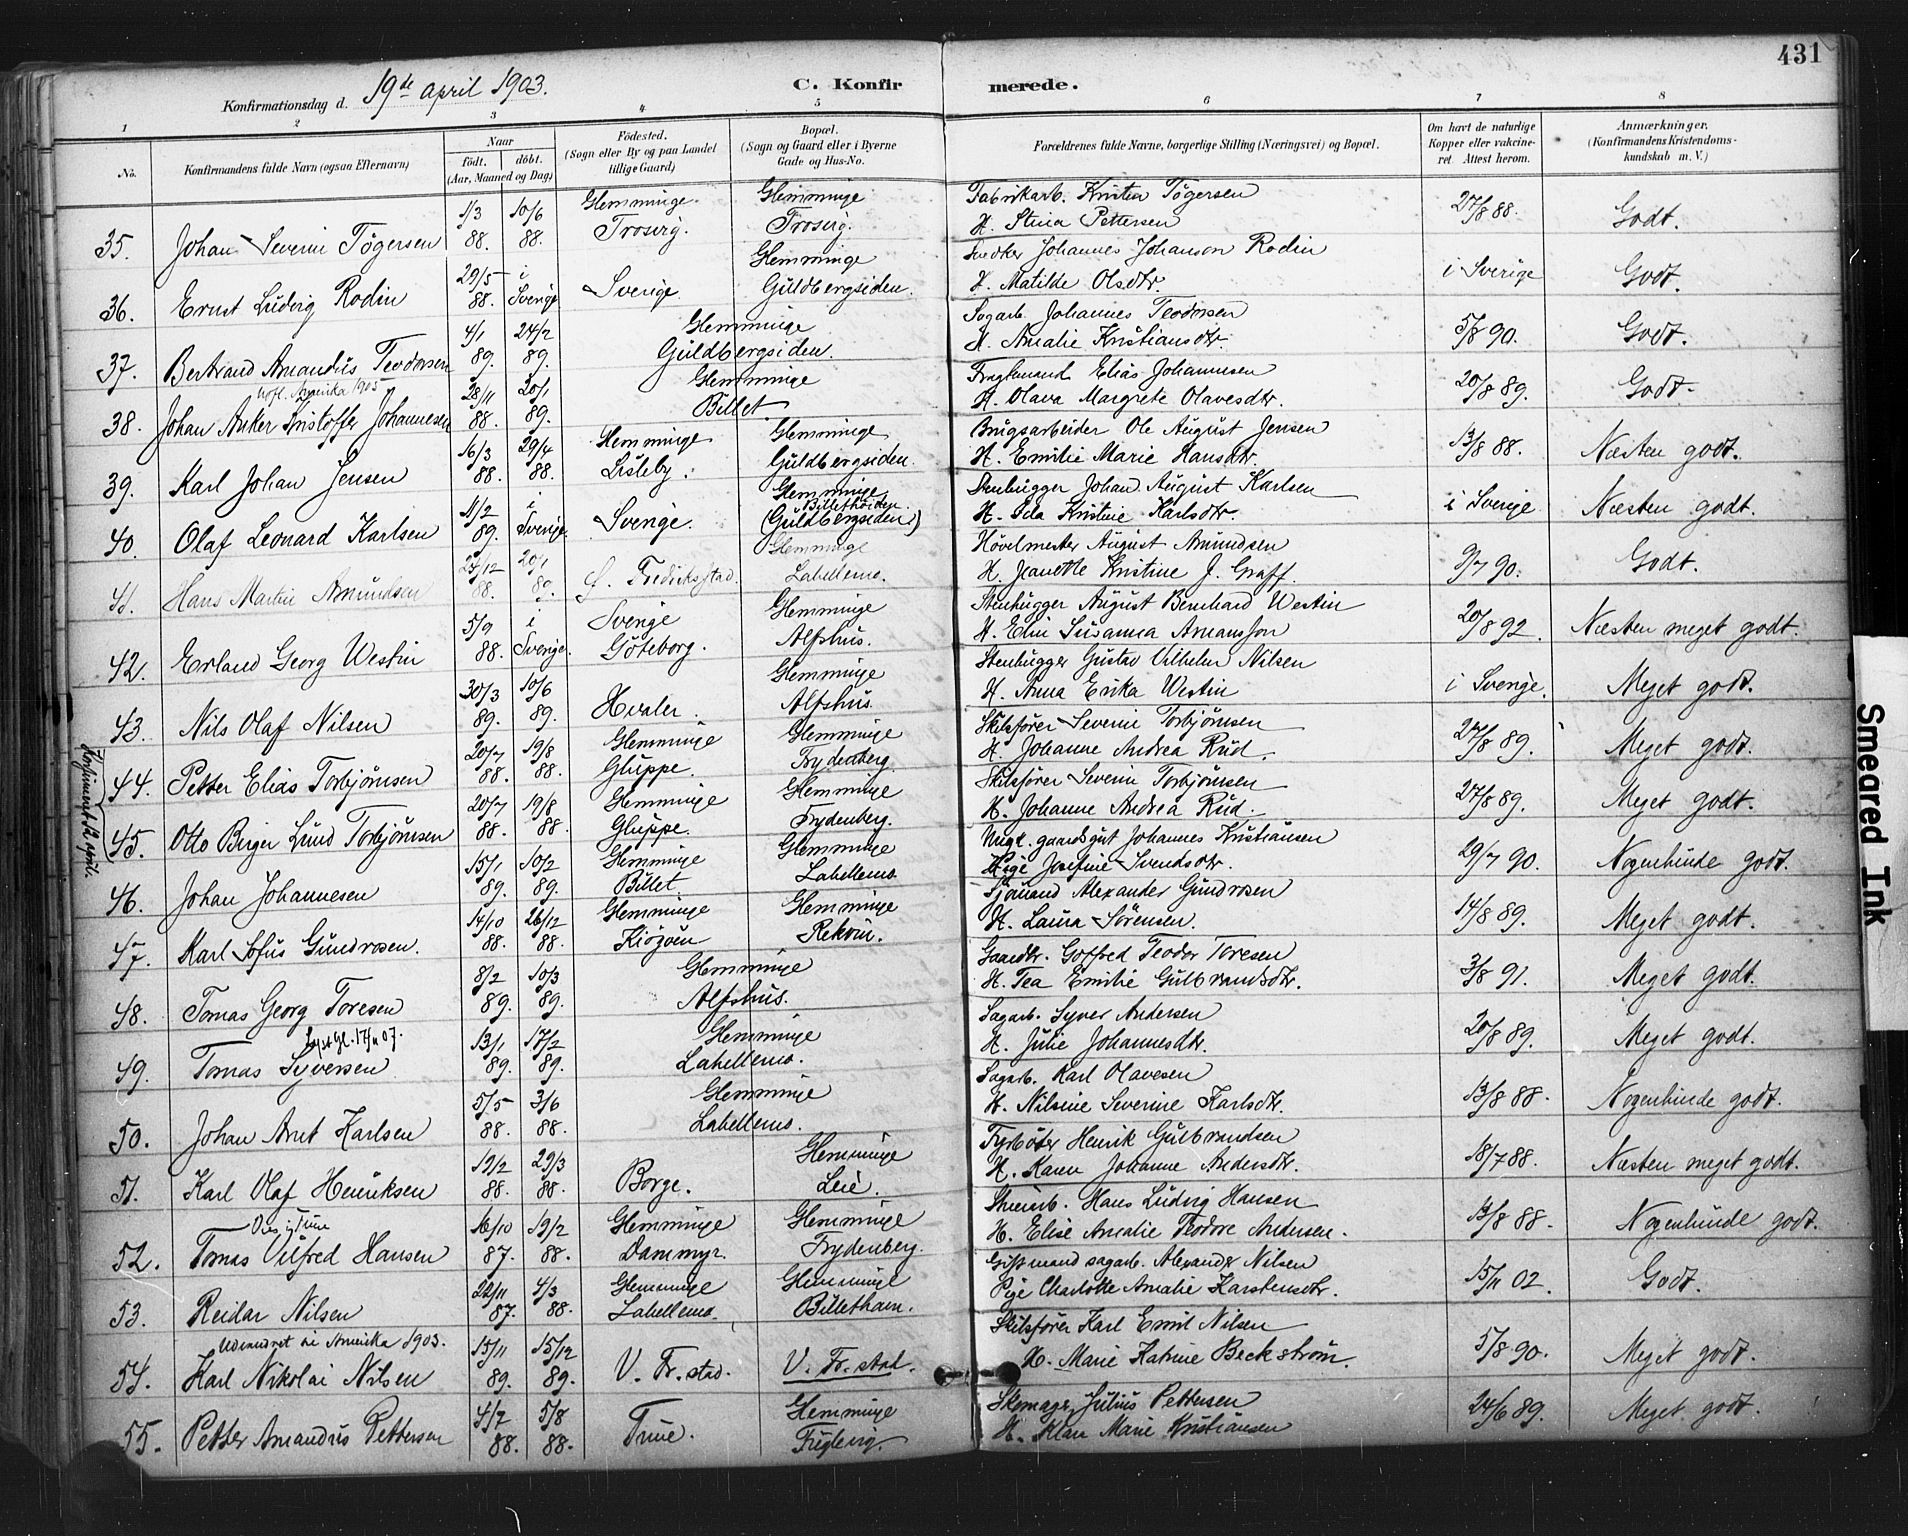 431
Konfirmationsdag d. 19de april 1903.
C. Konfirmerede.
1 2 3 4 5 6 7 8
No.
Konfirmandens fulde Navn (ogsaa Efternavn)
Naar
født. døbt.
(Aar, Maaned og Dag)
Fødested.
(Sogn eller By og paa Landet
tillige Gaard)
Bopæl.
(Sogn og Gaard eller i Byerne
Gade og Hus-No.
Forældrenes fulde Navne, borgerlige Stilling (Næringsvei) og Bopæl.
Om havt de naturlige
Kopper eller vakcine-
ret. Attest herom.
Anmærkninger.
(Konfirmandens Kristendoms-
kundskab m. V.)
1/3 10/6 Glemminge Glemminge Fabrikarb. Kristen Tøgersen
35. Johan Severin Tøgersen 88. 88. Trosvig. Trosvig. H. Stina Pettersen 27/8 88. Godt.
29/5 i Glemminge Johannes Johanson Rodin
36. Ernst Ludvig Rodin 88. Sverige Sverige Guldbergsiden. H. Matilde Olsdtr i Sverige Godt.
4/1 24/2 Glemminge Sagarb. Johannes Teodorsen
37. Bertrand Amandus Teodorsen 89. 89. Guldbergsiden. H. Amalie Kristiansdtr. 5/8 90. Godt.
Amerika 1905
28/11 20/1 Glemminge Fragtemand Elias Johannesen
38. Johan Anker Kristoffer Johannesen 88. 89. Billet H. Olava Margrete Olavesdtr. 20/8 89. Godt.
16/3 29/4 Glemminge Glemminge Brugsarbeider Ole August Jensen
39. Karl Johan Jensen 88. 88. Lisleby. Guldbergsiden. H. Emilie Marie Hansdtr. 13/8 88. Næsten godt.
11/2 i Glemminge Stenhugger Johan August Karlsen
40. Olaf Leonard Karlsen 89. Sverige Sverige. (Guldbergsiden) H. Ida Kristine Karlsdtr. i Sverige Næsten godt.
20/1 Glemminge Høvelmester August Amundsen
41. Hans Martin Amundsen 88. 89. Ø. Fredriksstad. Labellemo. H. Jeanette Kristine J. Graff. 9/7 90. Godt.
5/9 i Sverige Glemminge Stenhugger August Bernhard Westin
42. Erland Georg Westin 88. Sverige. Göteborg. Alfshus. H. Elin Susanna Amansson 20/8 92. Næsten meget godt.
30/3 10/6 Glemminge Stenhugger Gustav Vilhelm Nilsen
43. Nils Olaf Nilsen 89. 89. Hvaler. Alfshus. H. Anna Erika Westin i Sverige. Meget godt.
Konfirmert 12 april.
20/7 19/8 Glemminge Glemminge Skibsfører Severin Torbjørnsen
44. Petter Elias Torbjørnsen 88. 88. Gluppe. Frydenberg. H. Johanne Andrea Rud. 27/8 89. Meget godt.
20/7 19/8 Glemminge Glemminge Skibsfører Severin Torbjørnsen
45. Otto Birger Lund Torbjørnsen 88. 88. Gluppe. Frydenberg. H. Johanne Andrea Rud. 27/8 89. Meget godt.
15/1 10/2 Glemminge Glemminge Ungk. gaardsgut Johannes Kristiansen
46. Johan Johannesen 89. 89. Billet. Labellemo. Pige Josefine Svendsdtr. 29/7 90. Nogenlunde godt.
14/10 26/12 Glemminge Glemminge Sjømand Alexander Gundrosen
47. Karl Sofus Gundrosen. 88. 88. Rekvin. H. Laura Sørensen. 14/8 89. Meget godt.
8/2 10/3 Glemminge Gaardbr. Goffred Teodor Toresen
48. Tomas Georg Toresen 89. 89. Alfshus. H. Tea Emilie Gulbrandsdtr. 3/8 91. Meget godt.
13/1 17/2 Glemminge Sagarb. Syver Andersen
49. Tomas Syversen 89. 89. Labellemo. H. Julie Johannesdtr. 20/8 89. Meget godt.
5/5 3/6 Glemminge Sagarb. Karl Olavesen
50. Johan Arnt Karlsen 88. 88. Labellemo. H. Nilsine Severine Karlsdtr. 13/8 88. Nogenlunde godt.
19/2 29/3 Glemminge Fyrbøter Henrik Gulbrandsen
51. Karl Olaf Henriksen 88. 88. Borge. Leie. H. Karen Johanne Andersdtr. 18/7 88. Næsten meget godt.
16/10 19/2 Glemminge Glemminge Hans Ludvig Hansen
52. Tomas Vilfred Hansen 87. 88. Dammyr. Frydenberg. H. Elise Amalie Teodore Andersen. 13/8 88. Nogenlunde godt.
22/11 4/3 Glemminge Glemminge Giftmand sagarb. Alexander Nilsen
53. Reidar Nilsen 87. 88. Labellemo. Pige Charlotte Amalie Karstensdtr. 15/11 02. Godt.
Udvandret til Amerika 1903.
15/11 15/12 Skibsfører Karl Emil Nilsen
54. Karl Nikolai Nilsen 89. 89. V. Fr.stad. V. Fr.stad. H. Marie Katrine Beckstrøm. 5/8 90. Meget godt.
4/7 5/8 Glemminge Skomager Julius Pettersen
55. Petter Amandus Pettersen 88. 88. Tune. Fuglevig. Marie Kristiansen 24/6 89. Meget godt.
Smeared Ink